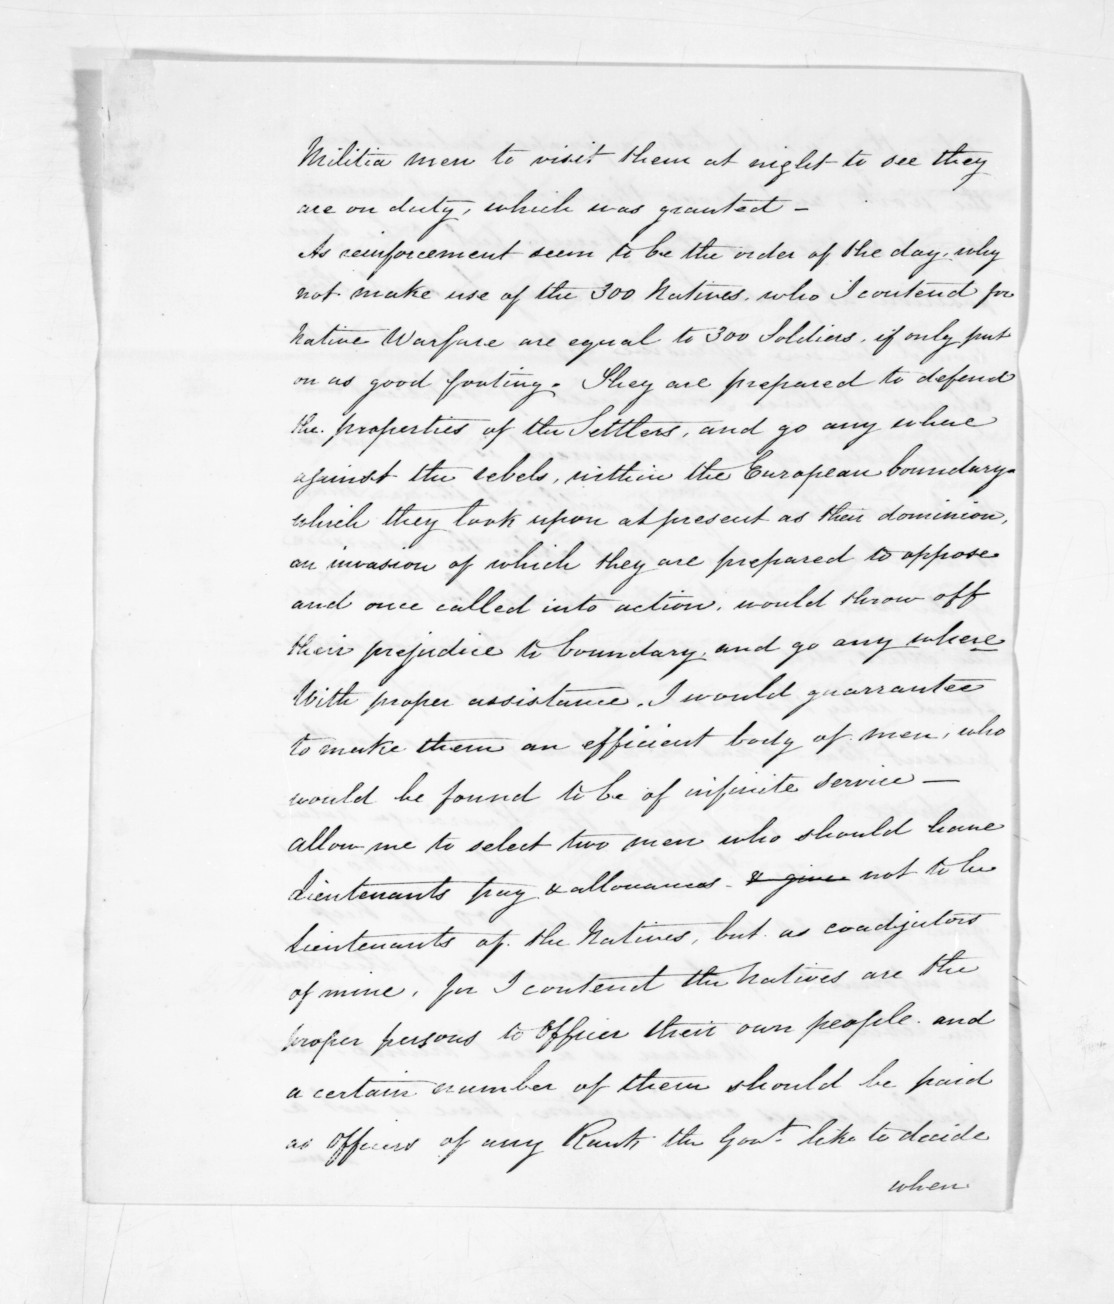 Militia men to visit them at night to see they
are on duty, which was granted -
As reinforcement seem to be the order of the day, why
not make use of the 300 Natives, who I contend for
Native Warfare are equal to 300 Soldiers, if only put
on as good footing. They are prepared to defend
the properties of the Settlers, and go any where
against the rebels, within the European boundary -
which they look upon at present as their dominion,
an invasion of which they are prepared to oppose
and once called into action, would throw off
their prejudice to boundary, and go any where
With proper assistance, I would guarrantee
to make them an efficient body of men, who
would be found to be of infinite service -
allow me to select two men who should have
Lieutenants pay & allowances - & give not to be
lieutenants of the Natives, but as coadjutors
of mine, for I contend the Natives are the
proper persons to Officer their own people and
a certain number of them should be paid
as Officers of any Rank the Govt. like to decide
when